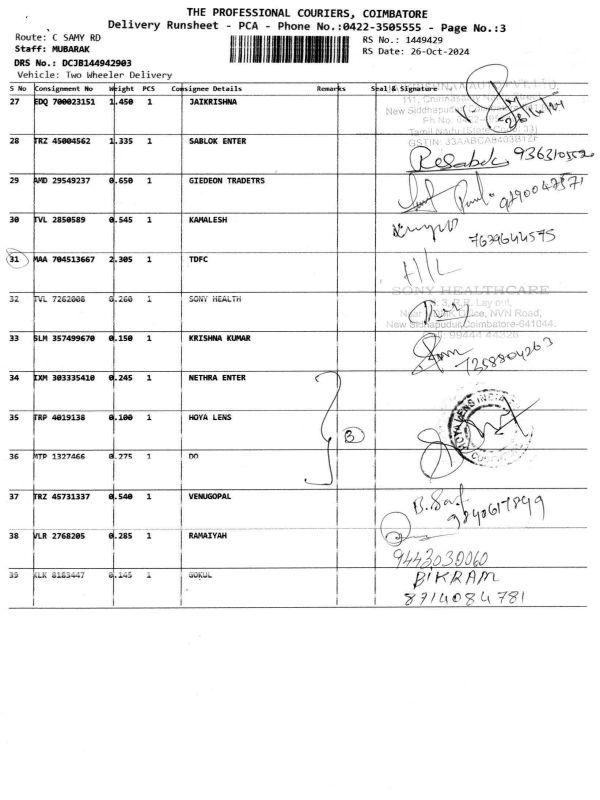 THE PROFESSIONAL COURIERS, COIMBATORE
Delivery Runsheet - PCA - Phone No.:0422-3505555 - Page No.:3
Route: C SAMY RD
RS No.: 1449429
Staff: MUBARAK
RS Date: 26-Oct-2024
DRS No.: DCJB144942903
Vehicle: Two Wheeler Delivery
S No Consignment No Weight PCS Consignee Details Remarks Seal & Signature
27 EDQ 700023151 1.450 1 JAIKRISHNA
New Siddhapudur
Tamil Nadu
28 TRZ 45004562 1.335 1 SABLOK ENTER
GSTIN: 33AABCA8403B1ZF
29 AMD 29549237 0.650 1 GIEDEON TRADETRS
9790047571
30 TVL 2850589 0.545 1 KAMALESH
7639644575
31 MAA 704513667 2.305 1 TDFC
32 TVL 7262008 0.260 1 SONY HEALTH
SONY HEALTHCARE
3, R.R. Lay out,
Office, NVN Road,
New Sidhapudur, Coimbatore-641044.
99444 44326
33 SLM 357499670 0.150 1 KRISHNA KUMAR
7358804263
34 IXM 303335410 0.245 1 NETHRA ENTER
35 TRP 4019138 0.100 1 HOYA LENS
3
HOYA LENS INDIA
36 MTP 1327466 0.275 1 DO
37 TRZ 45731337 0.540 1 VENUGOPAL
9840617849
38 VLR 2768205 0.285 1 RAMAIYAH
9443030060
39 KLK 8163447 0.145 1 GOKUL
BIKRAM
8714084781